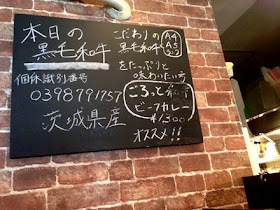 本日の
黒毛和牛
個体識別番号
0398791757
茨城県産
こだわりの
黒毛和牛
A4
A5
をたっぷりと
味わいたい方
ごろっと
ビーフカレー
¥1,300
オススメ!!